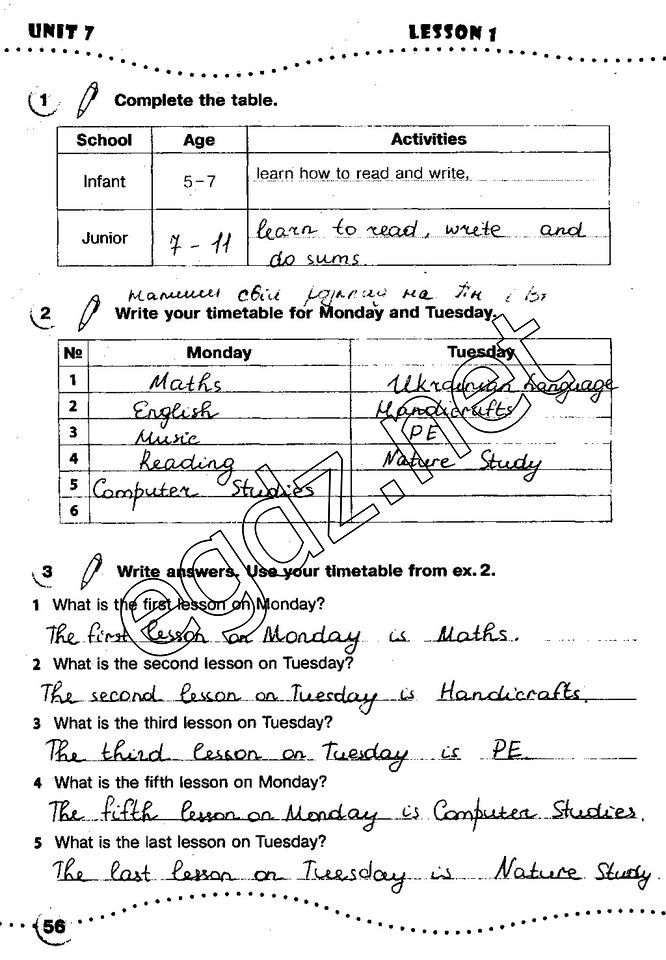 UNIT 7 LESSON 1
1 Complete the table.
School Age Activities
Infant 5-7 learn how to read and write,
Junior 7 - 11 learn to read, write and
do sums.
свій на Пн і Вт
2 Write your timetable for Monday and Tuesday.
№ Monday Tuesday
1 Maths Ukrainian Language
2 English Handicrafts
3 Music PE
4 Reading Nature Study
5 Computer Studies
6
egdz.net
3 Write answers. Use your timetable from ex. 2.
1 What is the first lesson on Monday?
The first lesson on Monday is Maths.
2 What is the second lesson on Tuesday?
The second lesson on Tuesday is Handicrafts.
3 What is the third lesson on Tuesday?
The third lesson on Tuesday is PE
4 What is the fifth lesson on Monday?
The fifth lesson on Monday is Computer Studies.
5 What is the last lesson on Tuesday?
The last lesson on Tuesday is Nature Study.
56